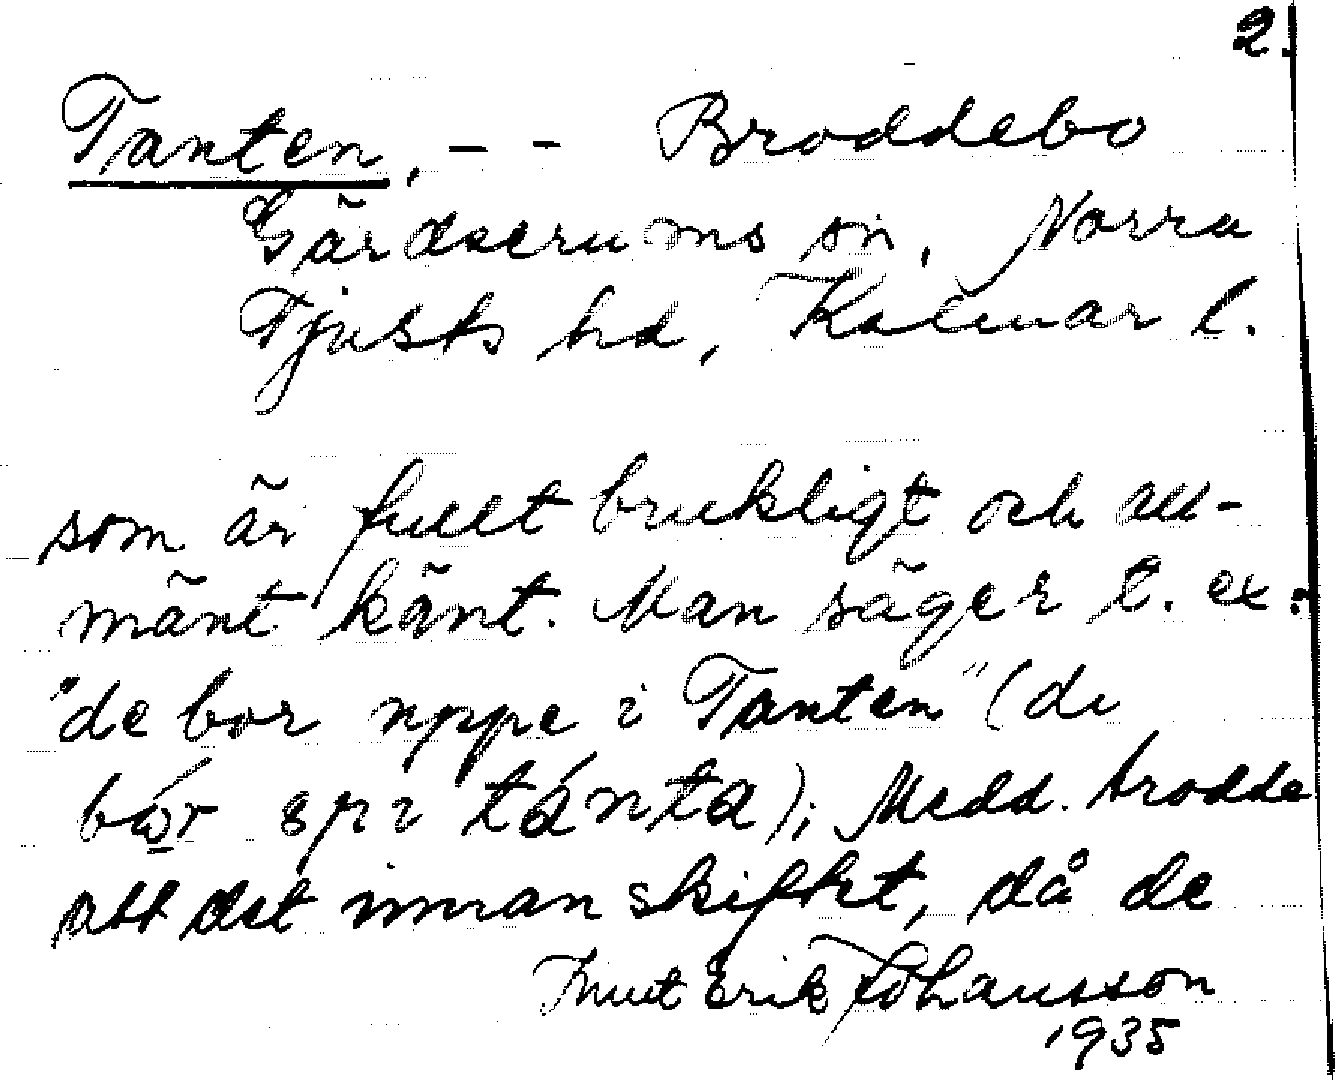 2.
Tanten, - - Broddebo
Gärdserums sn, Norra
Tjusts hd, Kalmar l.
som är fullt brukligt och all-
mänt känt. Man säger t. ex:
"de bor uppe i Tanten" (di
i tánta); Medd. trodde
att det innan skiftet, då de
Knut Erik Johansson
1935